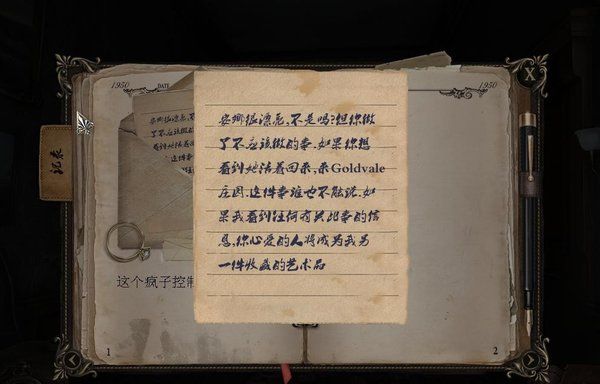 1950
DATE
1950
X
安娜很漂亮,不是吗?但你做
了不应该做的事.如果你想
看到她活着回来,来Goldvale
庄园.这件事谁也不能说.如
果我看到任何有关此事的信
息,你心爱的人将成为我另
一件收藏的艺术品
这个疯子控制
1
2